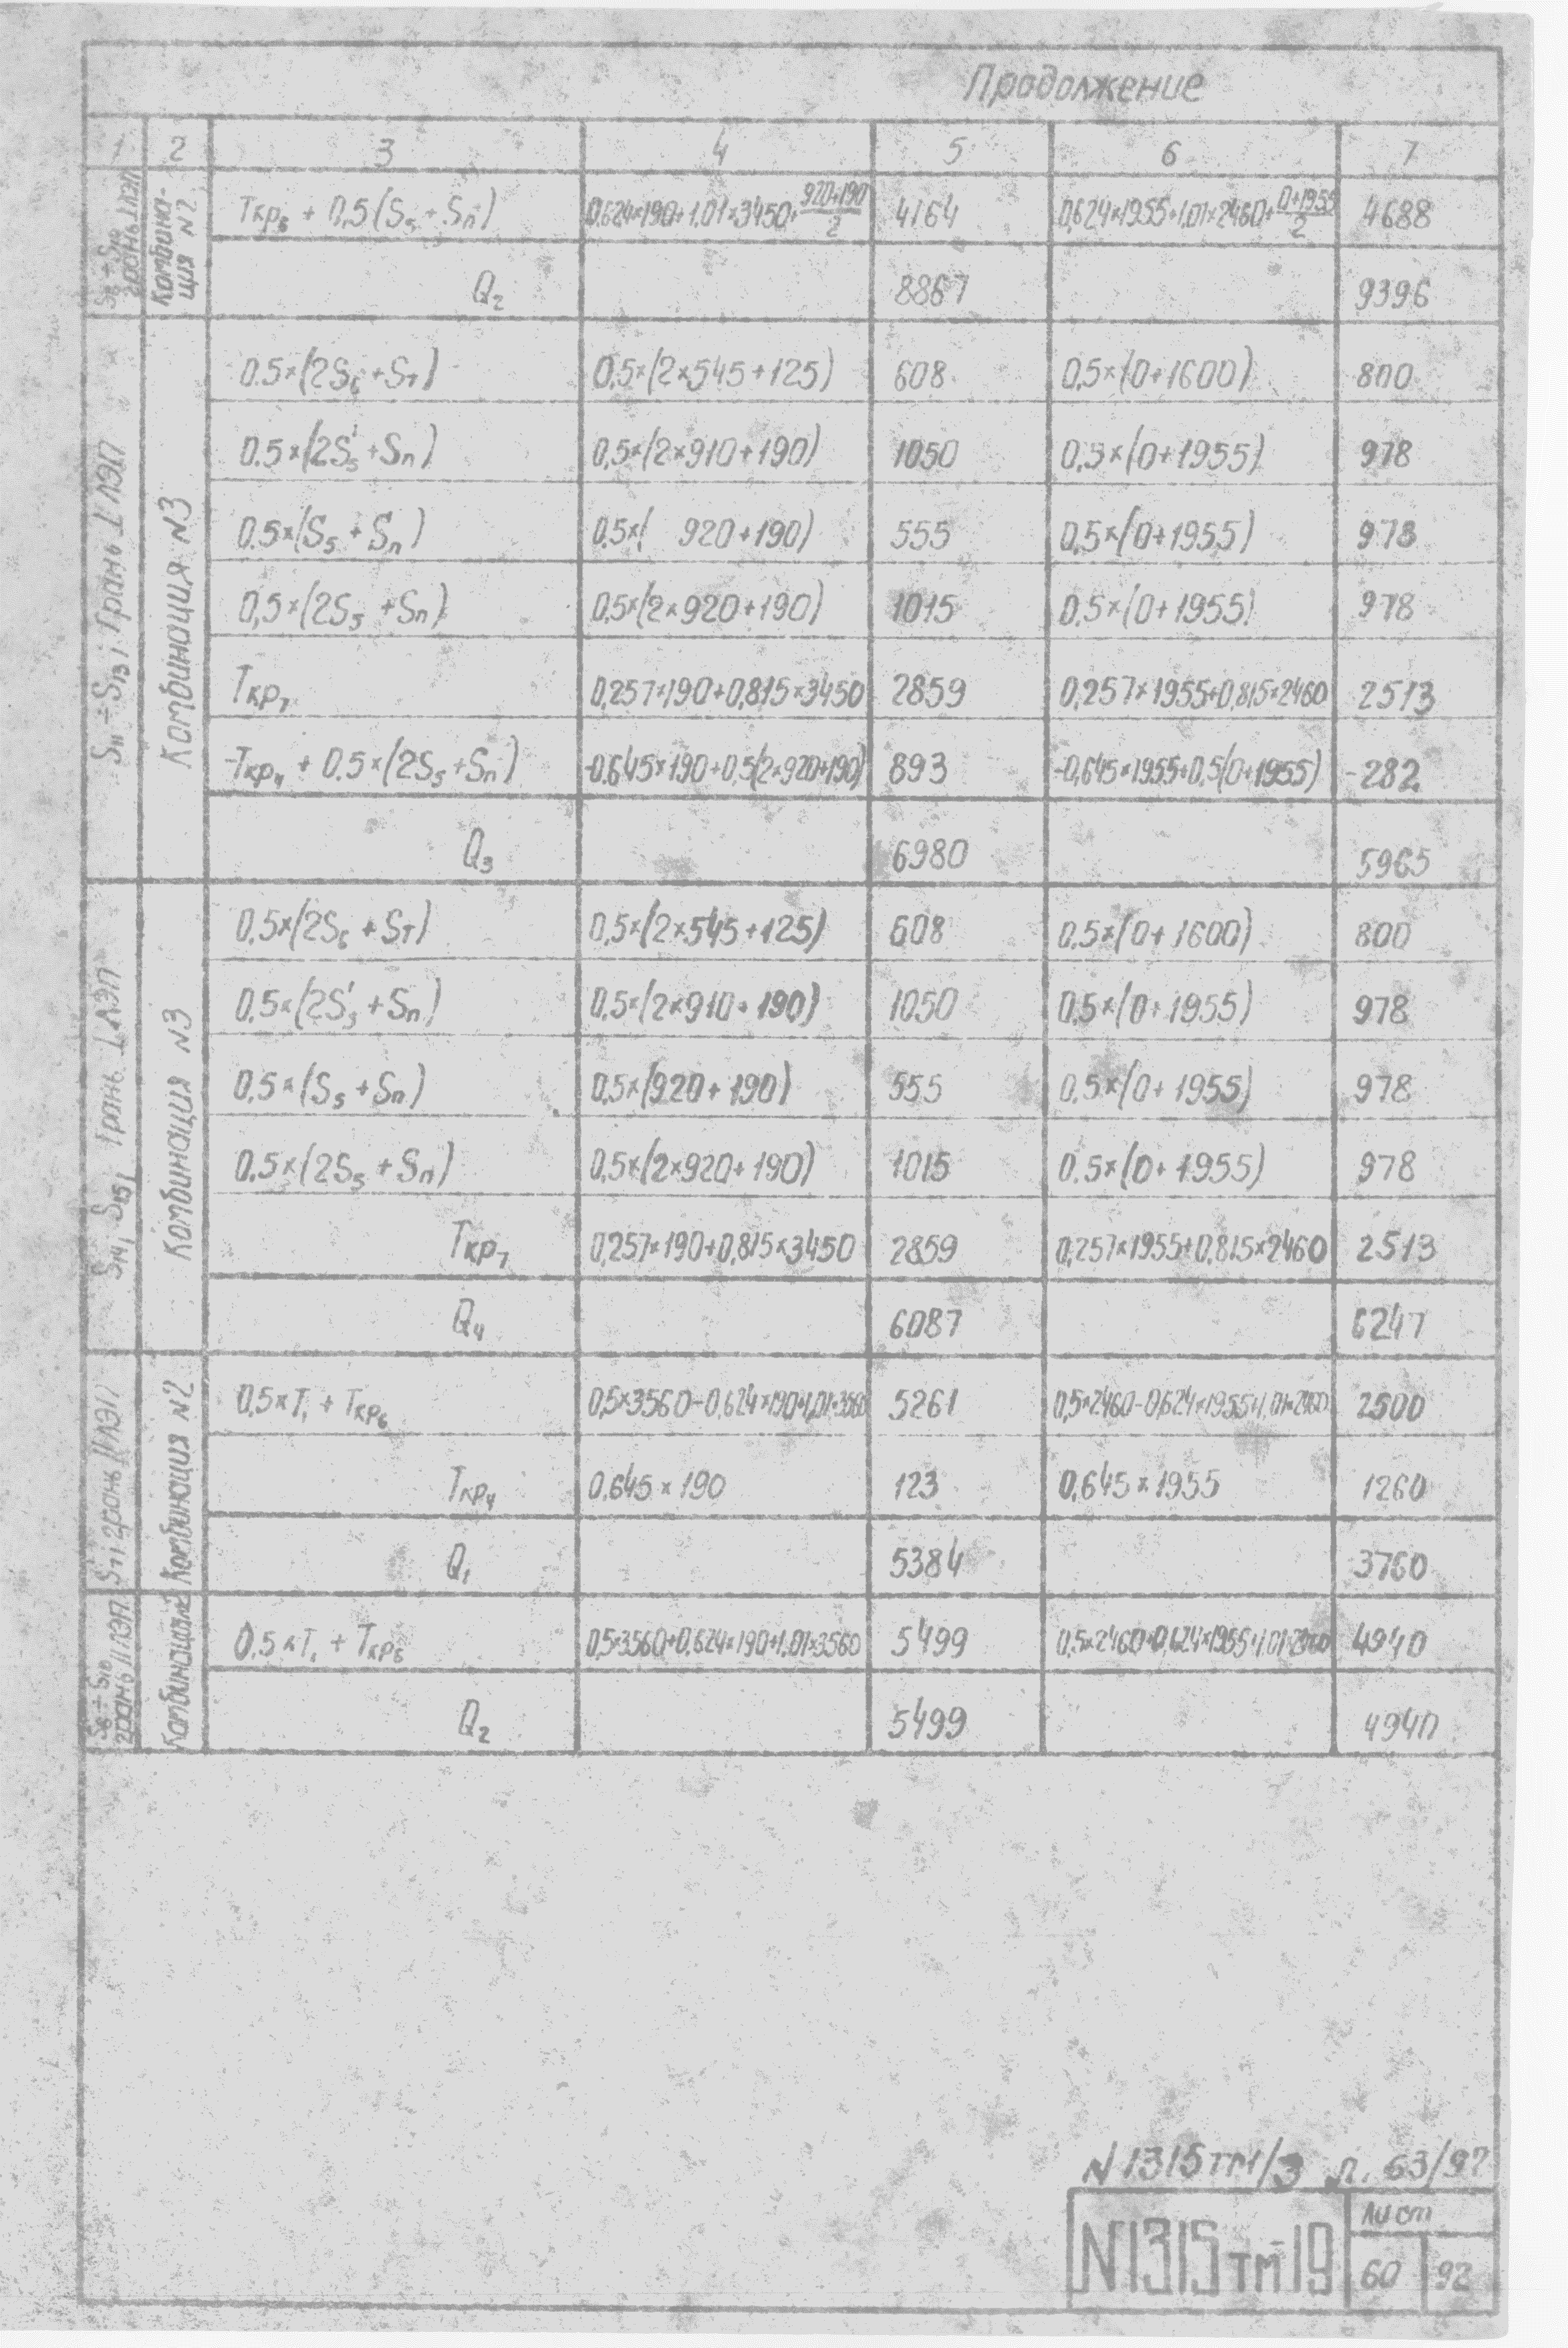 Продолжение
1 2 3 4 5 6 7
S₈ ÷ S₁₀ грань ⊥ ЛЭП
Комбина-
ция N2
Tкр₆ + 0,5(S₅ + Sп) 0,624×190+1,01×3450+(920+190)/2 4164 0,624×1955+1,01×2460+(0+1955)/2 4688
Q₂ 8867 9396
S₁₁ ÷ S₁₃; Грань ⊥ ЛЭП
Комбинация N3
0.5×(2S₆+Sт) 0.5×(2×545+125) 608 0,5×(0+1600) 800
0.5×(2S₅'+Sп) 0,5×(2×910+190) 1050 0,5×(0+1955) 978
0.5×(S₅+Sп) 0.5×( 920+190) 555 0,5×(0+1955) 978
0,5×(2S₅+Sп) 0,5×(2×920+190) 1015 0.5×(0+1955) 978
Tкр₇ 0,257×190+0,815×3450 2859 0,257×1955+0,815×2460 2513
-Tкр₄ + 0.5×(2S₅+Sп) -0.645×190+0,5(2×920+190) 893 -0,645×1955+0,5(0+1955) -282
Q₃ 6980 5965
S₁₄, S₁₅; Грань ⊥ ЛЭП
Комбинация N3
0.5×(2S₆+Sт) 0,5×(2×545+125) 608 0.5×(0+1600) 800
0.5×(2S₅'+Sп) 0,5×(2×910+190) 1050 0.5×(0+1955) 978
0,5×(S₅+Sп) 0,5×(920+190) 555 0.5×(0+1955) 978
0.5×(2S₅+Sп) 0,5×(2×920+190) 1015 0.5×(0+1955) 978
Tкр₇ 0,257×190+0,815×3450 2859 0,257×1955+0,815×2460 2513
Q₄ 6087 6247
S₇; грань || ЛЭП
Комбинация N2
0,5×T₁ + Tкр₆ 0,5×3560-0,624×190+1,01×3560 5261 0,5×2460-0,624×1955+1,01×2460 2500
Tкр₄ 0,645×190 123 0,645×1955 1260
Q₁ 5384 3760
S₈ ÷ S₁₀ грань || ЛЭП
Комбинация
0.5×T₁ + Tкр₆ 0,5×3560+0,624×190+1,01×3560 5499 0,5×2460+0,624×1955+1,01×2460 4940
Q₂ 5499 4940
N1315тм/3 л. 63/92
N1315тм-19
Лист
60 92